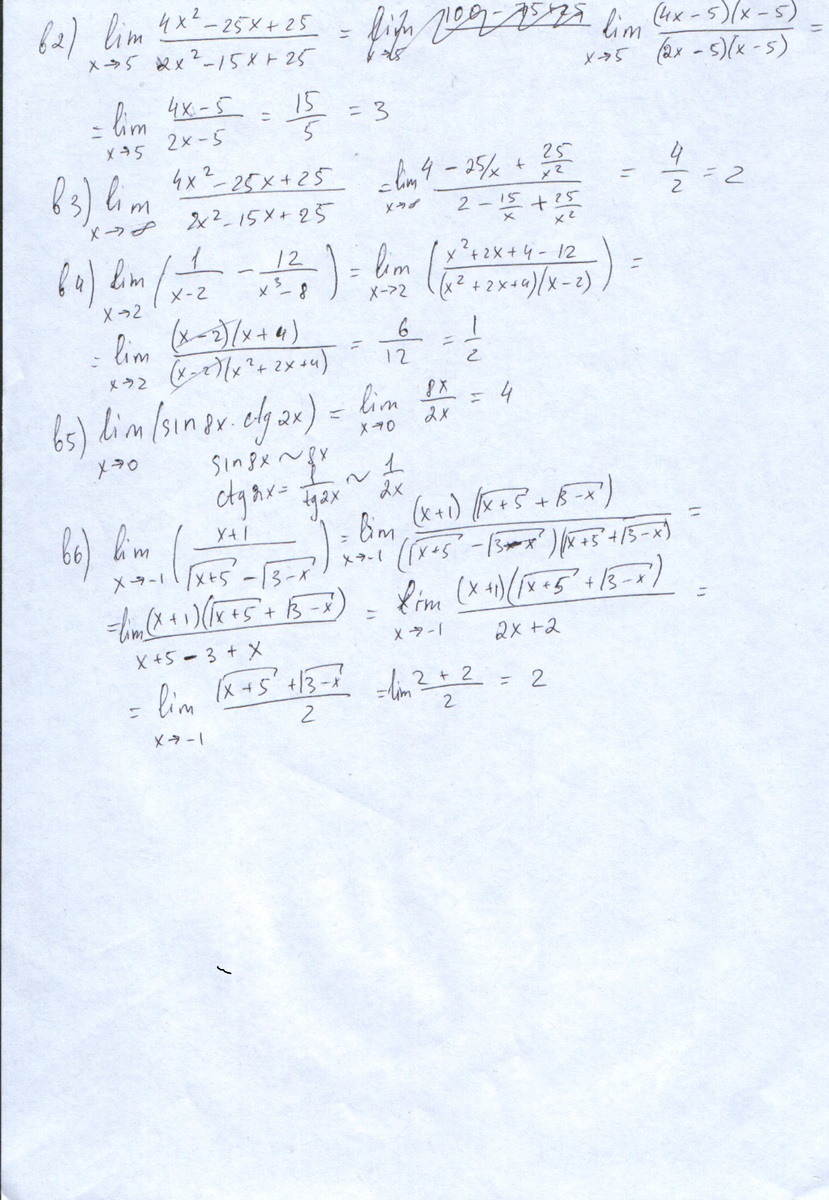 в2) lim x→5 (4x² − 25x + 25)/(2x² − 15x + 25) = lim x→5 ((4x − 5)(x − 5))/((2x − 5)(x − 5)) =
= lim x→5 (4x − 5)/(2x − 5) = 15/5 = 3
в3) lim x→∞ (4x² − 25x + 25)/(2x² − 15x + 25) = lim x→∞ (4 − 25/x + 25/x²)/(2 − 15/x + 25/x²) = 4/2 = 2
в4) lim x→2 (1/(x−2) − 12/(x³−8)) = lim x→2 ((x² + 2x + 4 − 12)/((x² + 2x + 4)(x − 2))) =
= lim x→2 ((x − 2)(x + 4))/((x − 2)(x² + 2x + 4)) = 6/12 = 1/2
в5) lim x→0 (sin 8x · ctg 2x) = lim x→0 8x/2x = 4
sin 8x ~ 8x
ctg 2x = 1/tg2x ~ 1/2x
в6) lim x→−1 ((x+1)/(√(x+5) − √(3−x))) = lim x→−1 ((x+1)(√(x+5) + √(3−x)))/((√(x+5) − √(3−x))(√(x+5) + √(3−x))) =
= lim ((x+1)(√(x+5) + √(3−x)))/(x+5 − 3 + x) = lim x→−1 ((x+1)(√(x+5) + √(3−x)))/(2x + 2) =
= lim x→−1 (√(x+5) + √(3−x))/2 = lim (2 + 2)/2 = 2